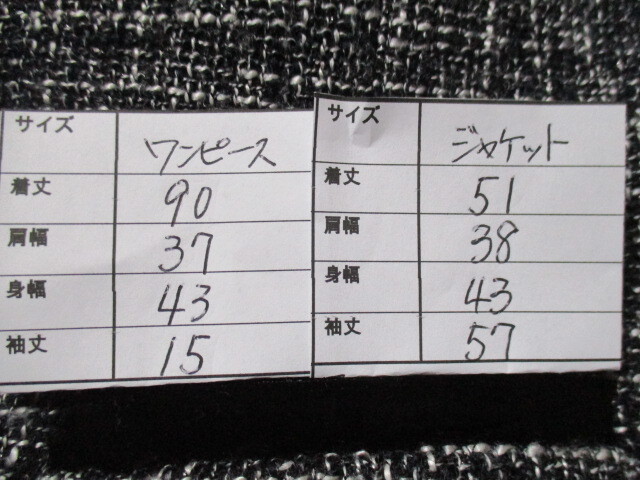 サイズ ワンピース
着丈 90
肩幅 37
身幅 43
袖丈 15
サイズ ジャケット
着丈 51
肩幅 38
身幅 43
袖丈 57